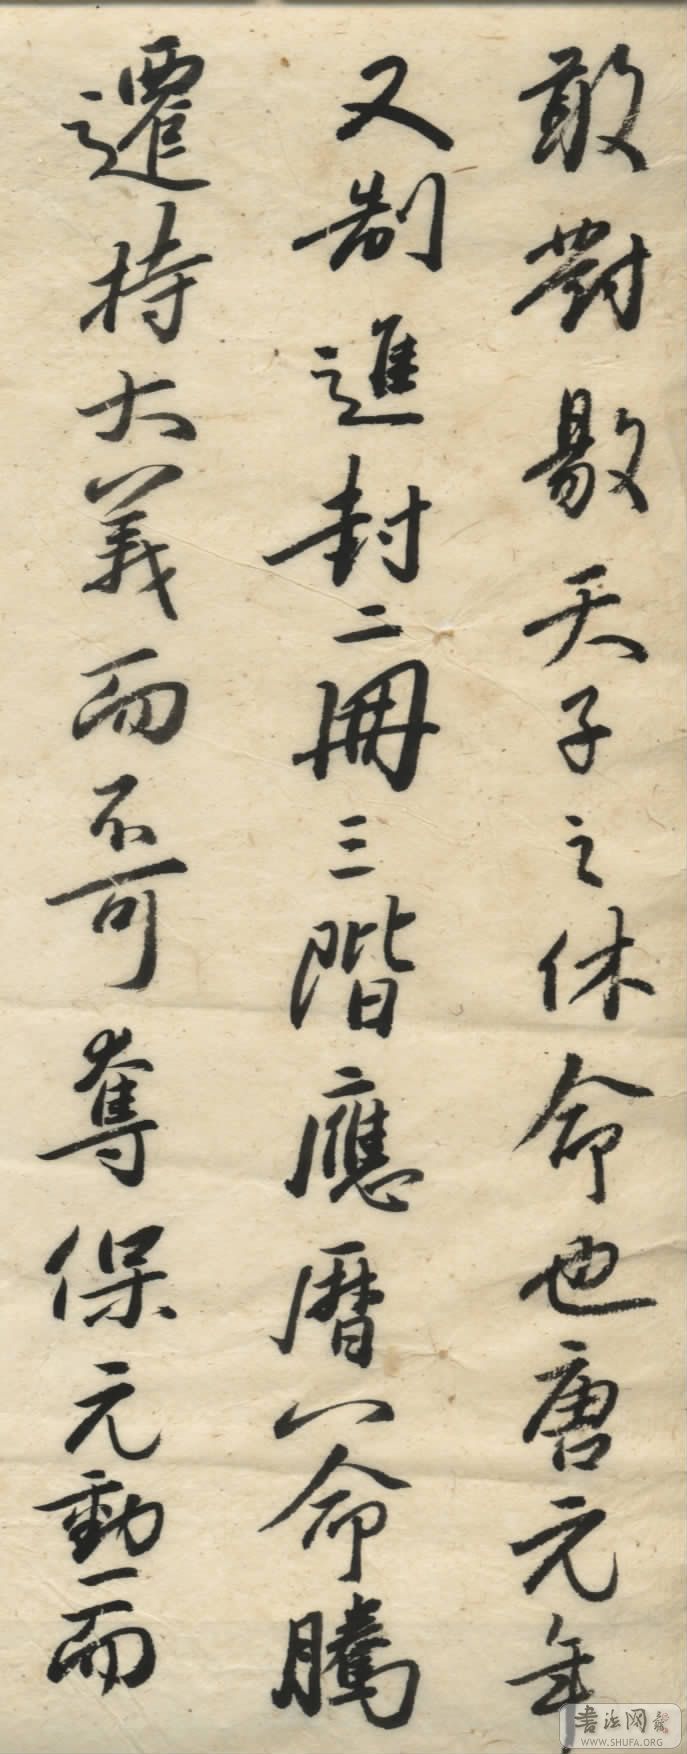 敢對敭天子之休命也唐元年
又制進封二冊三階應曆八命騰
遷持大義而不可奪保元勳一而
書法网
WWW.SHUFA.ORG